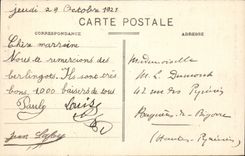 jeudi 29 Octobre 1921
CARTE POSTALE
CORRESPONDANCE
ADRESSE
Chère marraine
Nous te remercions des
berlingots. Ils sont très
bons. 1000 baisers de tous
Pauly Louis
Jean
Mademoiselle
M. L. Dumond
42 rue des Pyrénées
Bagnères-de-Bigorre
(Hautes-Pyrénées)